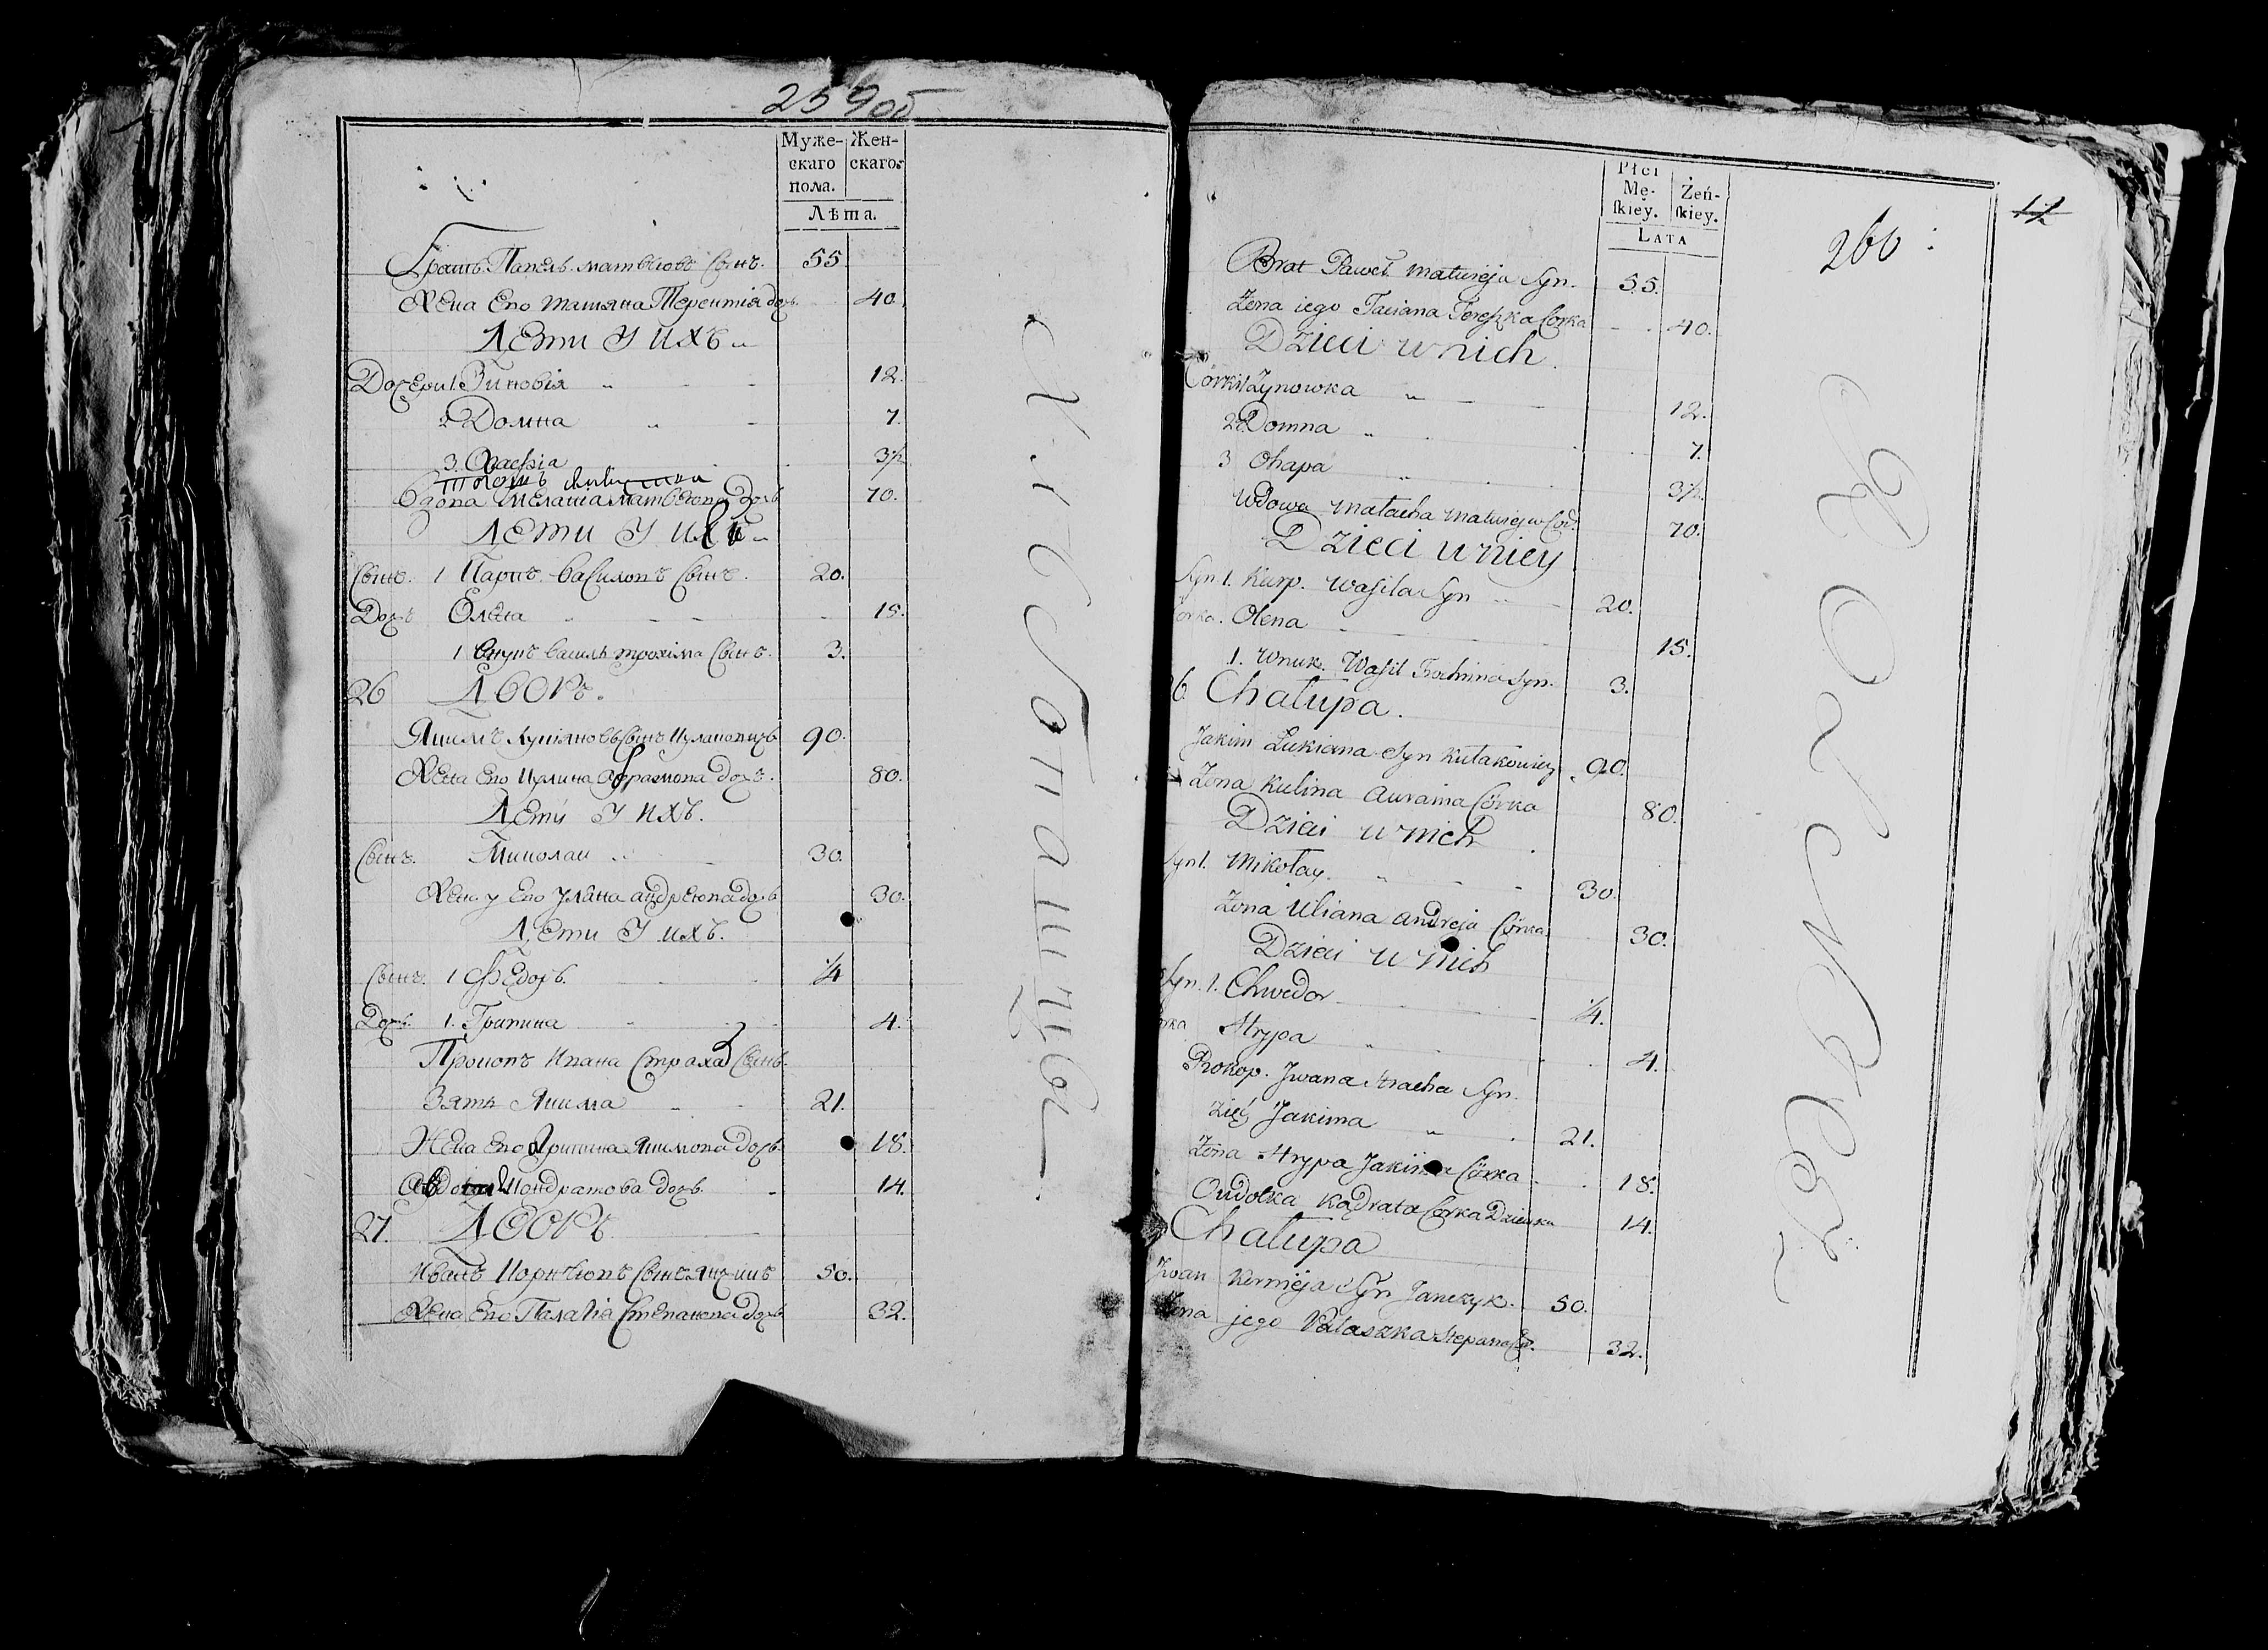 259об
Муже-
скаго
пола.
Жен-
скаго.
Лѣта.
Братъ Павелъ матвѣювъ Сынъ. 55
Жена Его татяна Терентия дочъ. 40.
Дети У ихъ
Дочери 1. Зиновія 12.
2 Домна 7.
3. Огафія 3½
вдова Мелаша матвеюва дочъ 70.
Дети У ией
Сынъ. 1 Карпъ василювъ Сынъ. 20.
Дочъ Олена 15.
1 внукъ василь трохима Сынъ. 3.
26 Дворъ.
Якимъ лукіяновъ Сынъ Кулаковичъ 90.
Жена Его Кулина аврамова дочъ. 80.
Дети У ихъ.
Сынъ. Миколаи 30.
Жена у Его Уляна андреюва дочъ 30.
Дети У ихъ.
Сынъ. 1 Федоръ. ¼
Дочъ. 1. Грипина 4.
Прокопъ Ивана Страха Сынъ.
Зять Якима 21.
Жена Его Грипина Якимова дочъ 18.
Кондратова дочъ. 14.
27. Дворъ
Иванъ Корнѣювъ Сынъ Янчикъ 50.
Жена Его Палагіа Степанова дочъ 32.
Płci
Mę-
ſkiey.
Żeń-
ſkiey.
LATA
260
12
Brat Paweł Matwieja Syn. 55.
Żena iego Taciana Tereszka Córka 40.
Dzieci u nich.
Córki 1 Zynowka 12.
2 Domna 7.
3 Ohapa 3½.
Wdowa Małacha Matwiejw Cór. 70.
Dzieci u niey
Syn 1. Karp. Wasila Syn 20.
Córka. Olena 15.
1. Wnuk. Wasil Trochima Syn. 3.
26. Chałupa.
Jakim Łukiana Syn Kułakowicz 90.
Żena Kulina Aurama Córka 80.
Dzieci u nich
Syn 1. Mikołay. 30.
Żena Uliana Andreja Córka. 30.
Dzieci u nich
Syn. 1. Chwedor ¼.
Córka Hrypa 4.
Prokop. Jwana Stracha Syn.
Zięć Jakima 21.
Żena Hrypa Jakima Córka 18.
Oudotka Kądrata Córka Dziewka 14.
Chałupa
Jwan Kornieja Syn Janczyk. 50.
Żena jego Pałaszka Stepana Cór. 32.